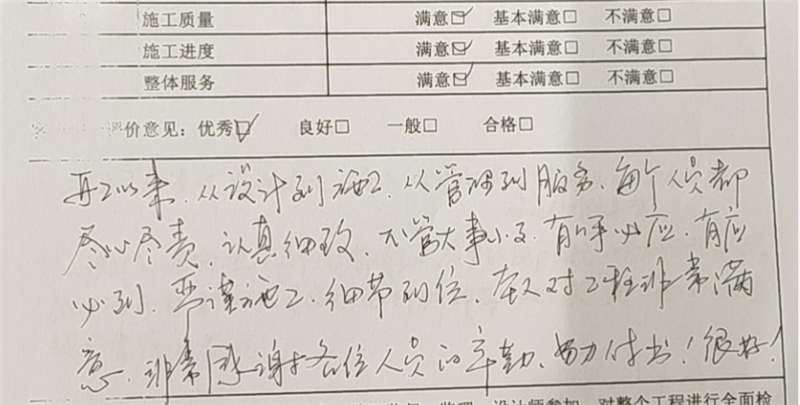 施工质量 满意☑ 基本满意□ 不满意□
施工进度 满意☑ 基本满意□ 不满意□
整体服务 满意☑ 基本满意□ 不满意□
※ 评价意见：优秀☑ 良好□ 一般□ 合格□
开工以来，从设计到施工，从管理到服务，每个人员都
尽心尽责，认真细致，不管大事小事，有呼必应，有应
必到，严谨施工，细节到位，本人对工程非常满
意，非常感谢各位人员的辛勤、努力付出！很好！
设计师参加，对整个工程进行全面检